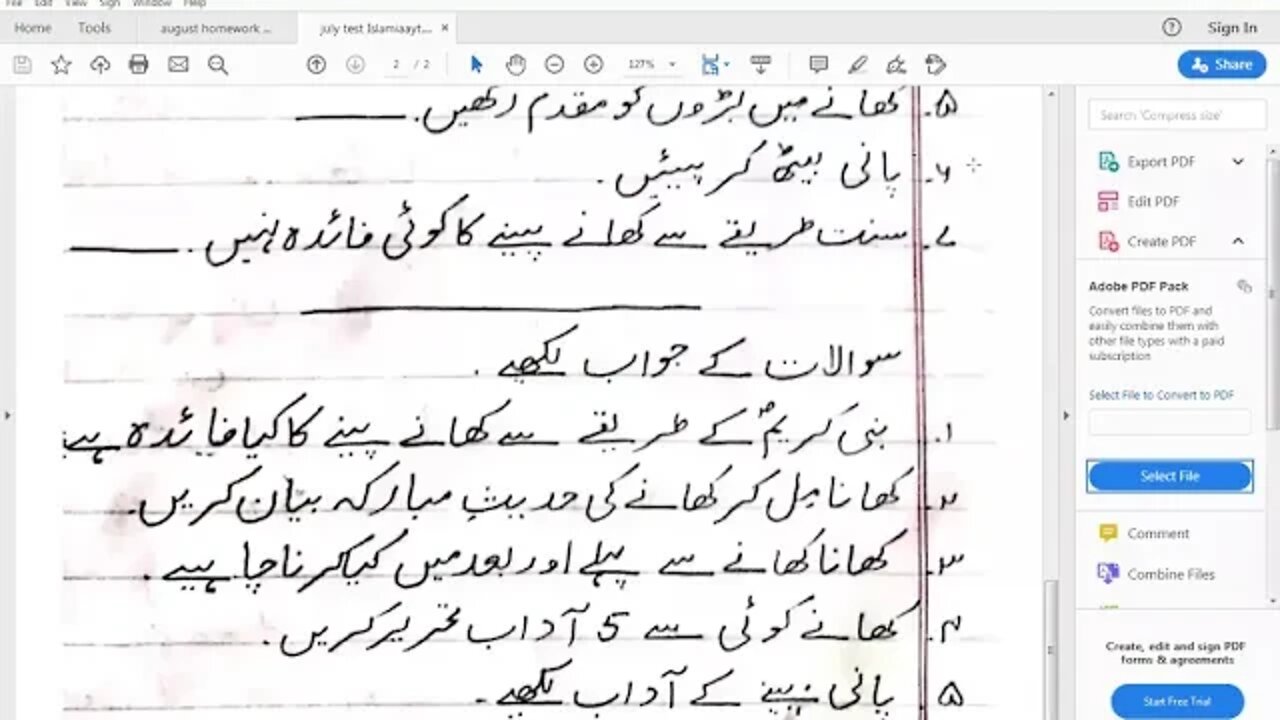 File Edit View Sign Window Help
Home Tools august homework ... july test Islamiaayt... ×
Sign In
2 / 2 127% Share
۵. کھانے میں بڑوں کو مقدم رکھیں.
۶. پانی بیٹھ کر پیئیں.
۷. سنت طریقے سے کھانے پینے کا کوئی فائدہ نہیں.
سوالات کے جواب لکھیے.
۱. نبی کریمؐ کے طریقے سے کھانے پینے کا کیا فائدہ ہے
۲. کھانا مل کر کھانے کی حدیثِ مبارکہ بیان کریں.
۳. کھانا کھانے سے پہلے اور بعد میں کیا کرنا چاہیے.
۴. کھانے کوئی سے 5 آداب تحریر کریں.
۵ پانی پینے کے آداب لکھیے.
Search 'Compress size'
Export PDF
Edit PDF
Create PDF
Adobe PDF Pack
Convert files to PDF and
easily combine them with
other file types with a paid
subscription
Select File to Convert to PDF
Select File
Comment
Combine Files
Create, edit and sign PDF
forms & agreements
Start Free Trial